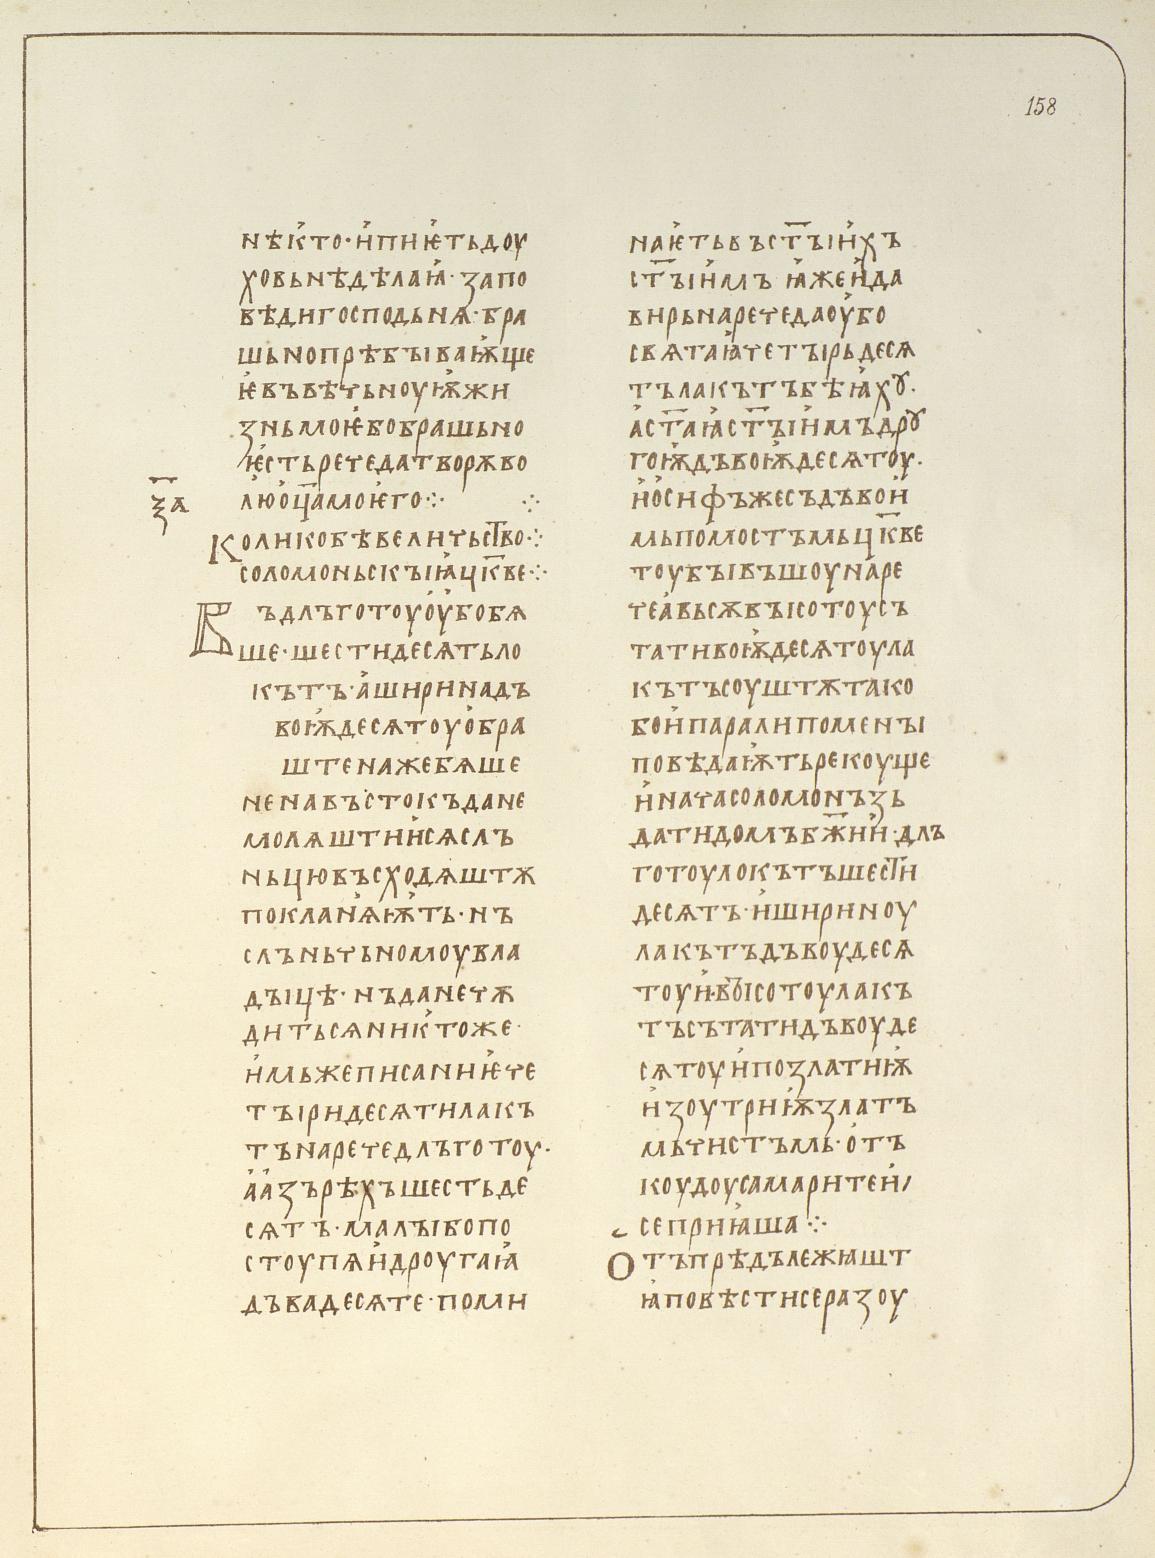 158
нѣкто·и҆пиѥ҆тьдоу
ховьнѣдѣлаꙗ҆·запо
вѣдигосподьнѧ·бра
шьнопрѣбꙑваѭ҆ще
ѥ҆въвѣчьноуѭ҆жи
зньмоѥ҆бобрашьно
ѥ҆стьречедатворѫво
лю҆о҆ц҃амоѥ҆го⁘ ⁘
ѯ҃а
Коликобѣвеличьст҃во⁘
соломоньскꙑꙗ҆ц҃кве⁘
Въдлъготоуо҆у҆бобѧ
ше·шестидесѧтьло
кътъ·а҆ширинадъ
воѭ҆десѧтоуо҆бра
штенажебѧше
ненавъстокъдане
молѧштии҆сѧслъ
ньцювъсходѧштѫ
покланꙗ҆ѭ҆ть·нъ
слъньчьномоувла
дꙑцѣ·нъданечѫ
дитьсѧник҆тоже·
и҆мьжеписаниѥ҆че
тꙑридесѧтилакъ
тънаречедлъготоу·
а҆а҆зърѣхъшестьде
сѧтъ·малꙑбопо
стоупѧи҆дроугаꙗ҆
дъвадесѧте·поми
наѥ҆тьвъст҃ꙑи҆хъ
ст҃ꙑи҆мъꙗ҆жеи҆да
вирьнаречедаоу҆бо
свѧтаꙗ҆четꙑрьдесѧ
тълакътъбѣꙗ҆хꙋ·
а҆ст҃аꙗ҆ст҃ꙑи҆мъдрꙋ
гоѭ҆дъвоѭ҆десѧтоу·
и҆о҆сифъжесъдъвои҆
мьпомостъмьц҃кве
тоубꙑвъшоунаре
чеа҆вьсѫвꙑсотоусъ
тативоѭ҆десѧтоула
кътъсоуштѫтако
бои҆паралипоменꙑ
повѣдаѭ҆тьрекоуще
и҆начасоломонъзь
датидомъбж҃ии҆·длъ
готоулокътъшест҃и
десѧтъ·и҆ширино҆у
лакътъдъвоудесѧ
тоуи҆·вꙑсотоулакъ
тъсътатидъвоуде
сѧтоуи҆позлатиѭ҆
и҆зоутриѭ҆златъ
мьчистъмь·о҆тъ
коудоусамаритеи҆
сеприꙗ҆ша⁘
Отъпрѣдълежѩшт
ꙗ҆повѣстисеразоу